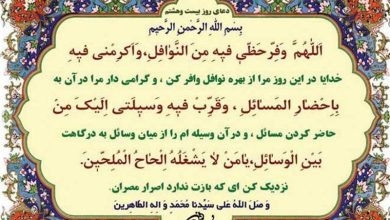 دعای روز بیست وهشتم
بِسْمِ اللهِ الرَّحْمنِ الرَّحیمِ
اَللّهُمَّ وَفِّرحَظّی فیهِ مِنَ النَّوَافِلِ،وَاَکرِمْنی فیهِ
خدایا در این روز مرا از بهره نوافل وافر کن ، و گرامی دار مرا در آن به
بِاِحْضارِ المَسائِلِ ، وَقَرِّبْ فیهِ وسیلَتی اِلَیکَ مِنْ
حاضر کردن مسائل ، و درآن وسیله ام را از میان وسائل به درگاهت
بَینِ الْوَسائِلِ،یامَنْ لا یَشْغَلُهُ اِلْحاحُ الْمُلحّینَ.
نزدیک کن ای که بازت ندارد اصرار مصران.
وَ صَلَّ اللهُ عَلی سَیِّدنا مُحَمَدٍ وَ الِهِ الطاهِرینَ